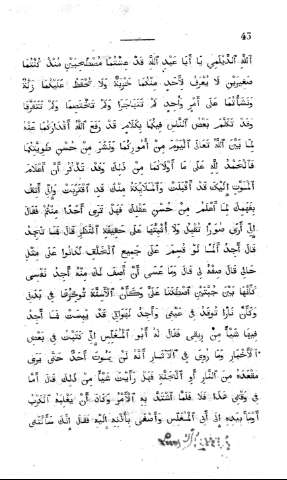 43
الله الديلمي يا أبا عبد الله قد عشتما مصطحبين منذ كنتما
صغيرين لا يعرف لأحد منكما خربة ولا تحفظ عليكما زلة
ونشأتما على أمر واحد لم تتهاجرا ولم تختصما ولم تتفرقا
وقد تكلم بعض الناس فيكما بكلام قد رفع الله أقداركما عنه
لما بين الله تعالى اليوم من أموركما ونشر من حسن طويتكما
فالحمد لله على ما أولاكما من ذلك وقد تذكر أن أعلام
الموت إليك قد أقبلت وأسلابه منك قد اقتربت وإني أثق
بفهمك لما أعلم من حسن عقلك فهل ترى أحدا منهم فقال
إني أرى صورا تقبل ولا أثبتها على حقيقة النظر قال فما تجد
قال أجد ألما لو قسم على جميع الخلق لكانوا على مثل
حالي قال صفه لي قال وما عسى أن أصف لك منه أجد نفسي
كأنها بين جبلين اصطكا علي وكأن الأسنة توكزها في بدني
وكأن نارا توقد في عيني وأجد لهواتي قد يبست فما أجد
فيها شيئا من ريقي فقال له أبو المغلس إني كتبت في بعض
الأخبار وما روي في الآثار أنه لن يموت أحد حتى يرى
مقعده من النار أو الجنة فهل رأيت شيئا من ذلك قال أما
في وقتي هذا فلا فلما اشتد به الأمر وكاد أن يغلبه الكرب
أومأ بيده إلى أبي المغلس وأصغى بأذنه إليه فقال إنك سألتني